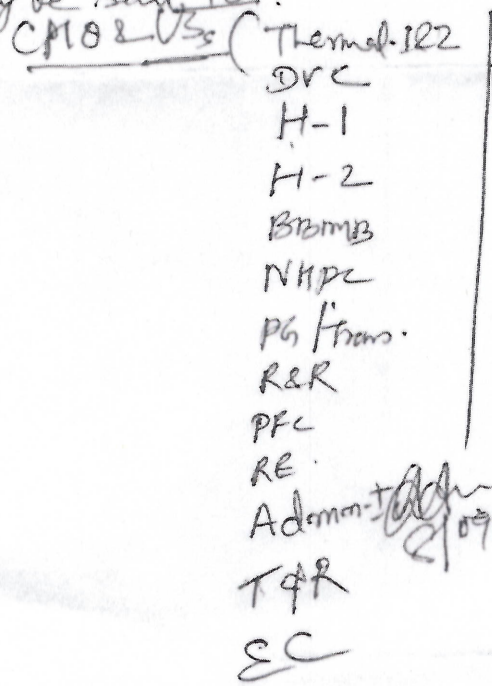 y be sent to:
CPIO & USs ( Thermal. 1&2
DVC
H-1
H-2
BBMB
NHPC
PG/Trans.
R&R
PFC
RE.
Admn-I
8/09
T&R
EC